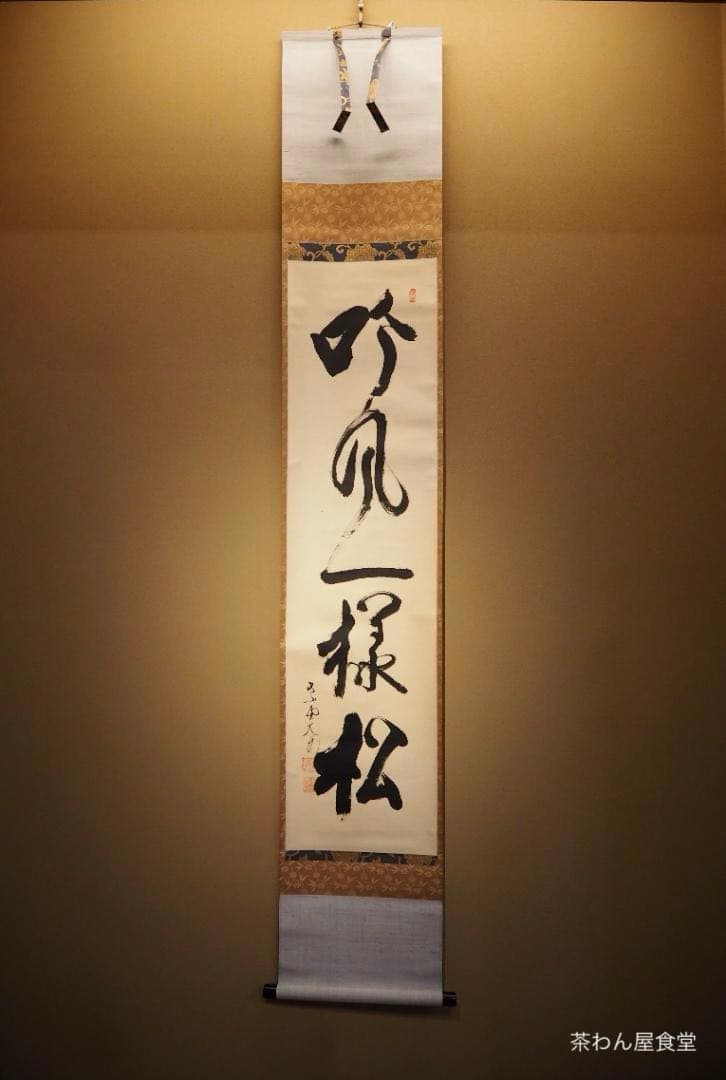 吟風一様松
茶わん屋食堂